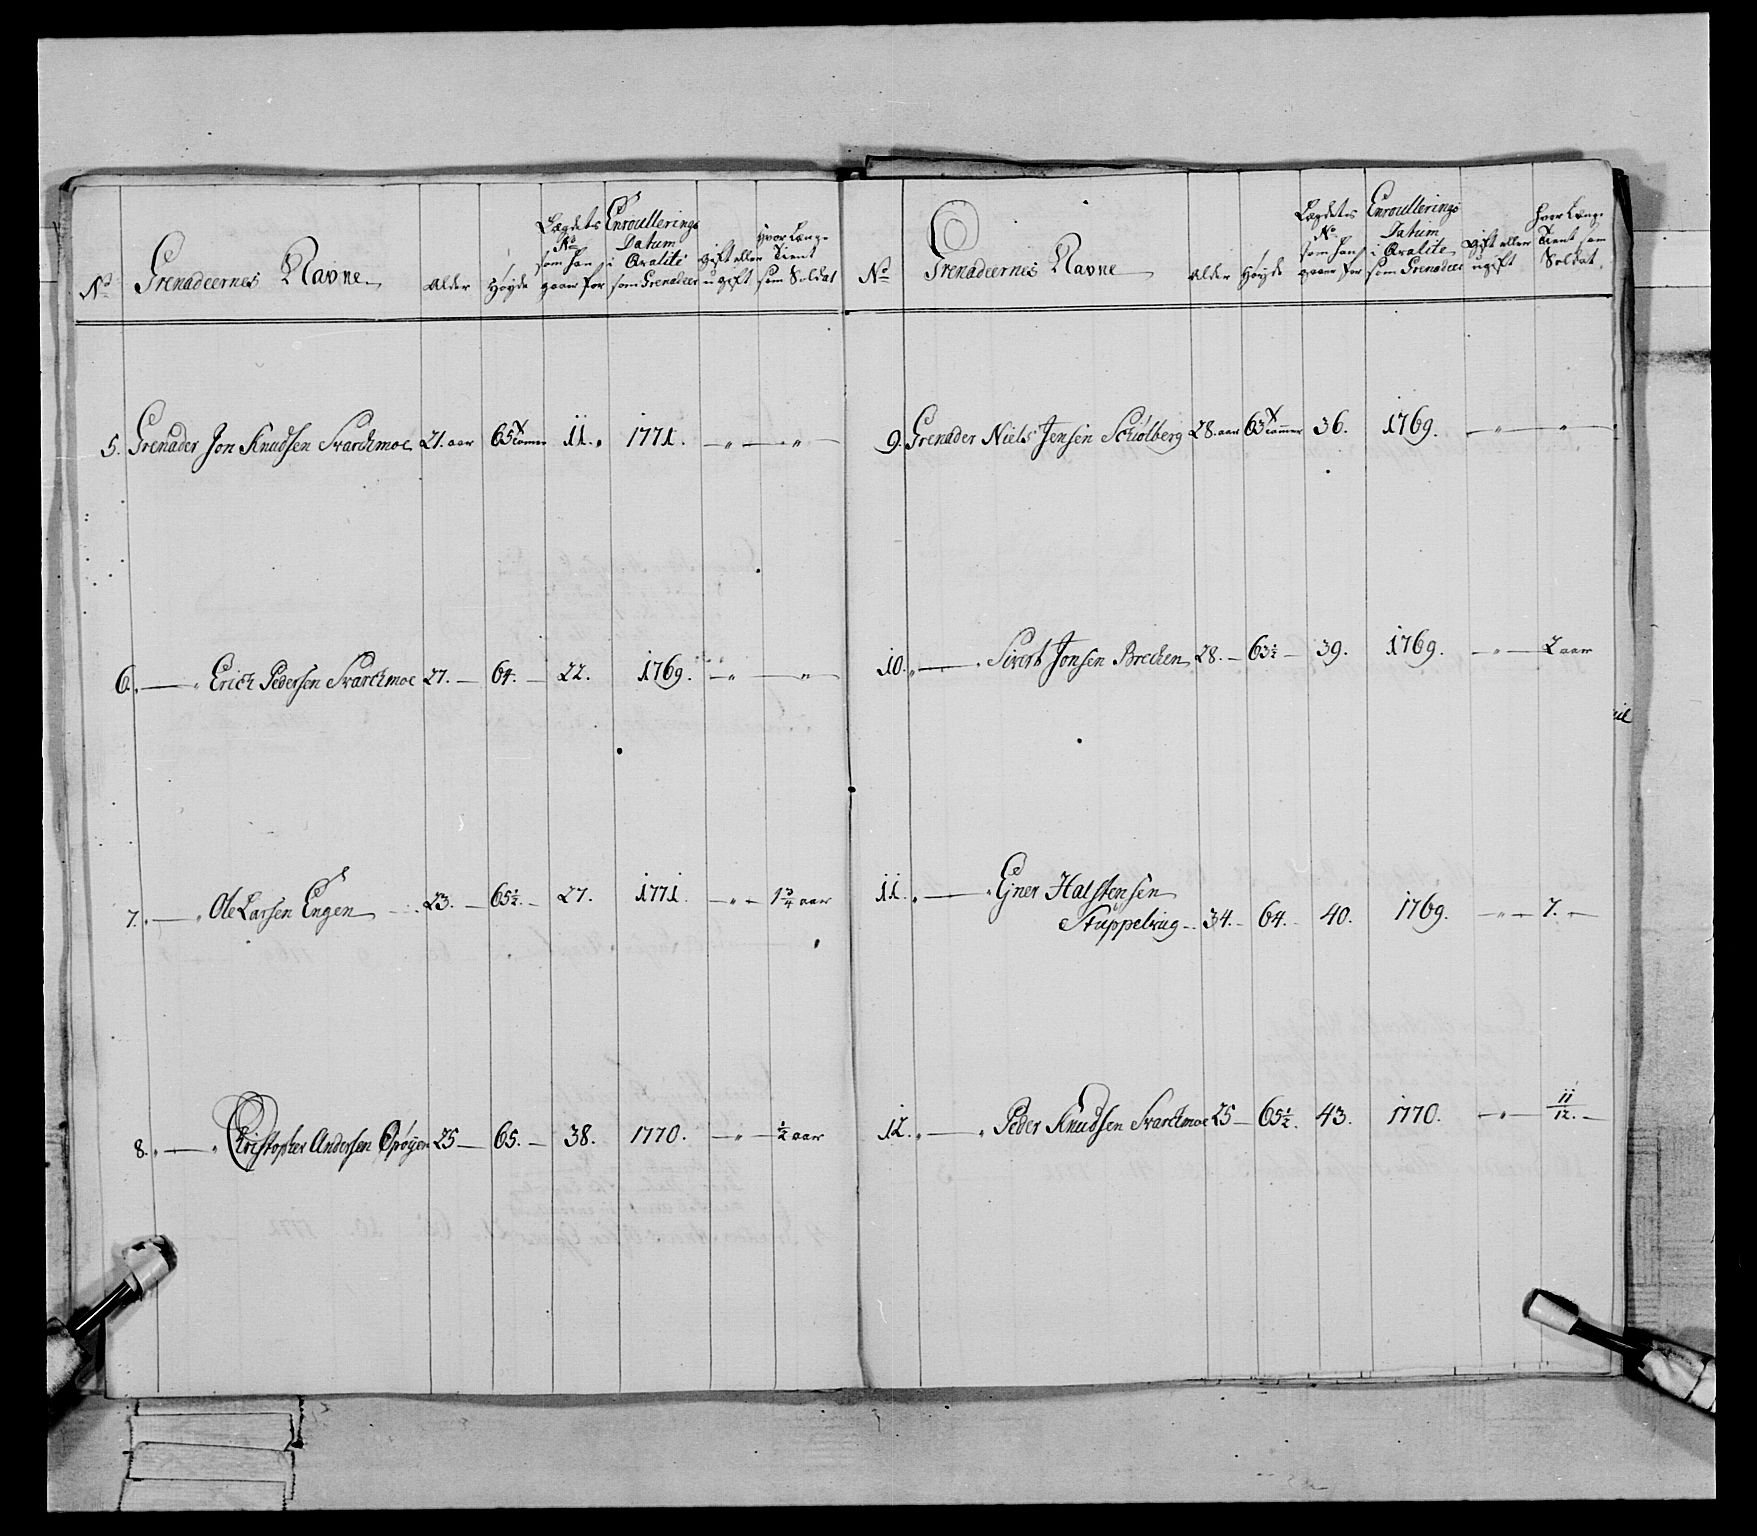 No
Grenadeernes Navne
Alder
Høyde
Lægdets
No
som han
gaaer for
Enroullerings
Datum
i Qvalite
som Grenadeer
Gift eller
ugift
Hvor Længe
Tient
som Soldat
5. Grenader Jon Knudsen Svarchmoe 21. aar 65 Tommer 11. „ 1771. — „ — „
6. — „ Erich Pedersen Svarchmoe 27. — 64. — 22. 1769. — „ — „ —
7. — „ Ole Larsen Engen 23. — 65½. — 27. 1771. — „ — 1¾ aar
8. „ — „ Christopher Andersen 25 — 65. — 38. 1770. — „ — ½ aar
No
Grenadeernes Navne
Alder
Høyde
Lægdets
No
som han
gaaer for
Enroullerings
Datum
i Qvalite
som Grenadeer
Gift eller
ugift
Hvor Længe
Tient som
Soldat.
9. Grenader Niels Jensen Schiølberg 28. aar 63 Tommer 36. 1769. — „ — „ —
10. „ — „ Sivert Jonsen Brechen 28. — 63½ — 39. 1769. — „ — 2 aar
11. „ — „ Ejner Halstensen
Stuppelvug — 34. — 64. — 40. 1769. — „ — 7. —
12. „ — „ Peder Knudsen Svarchmoe 25 — 65½. 43. 1770. — „ — 11/12. —